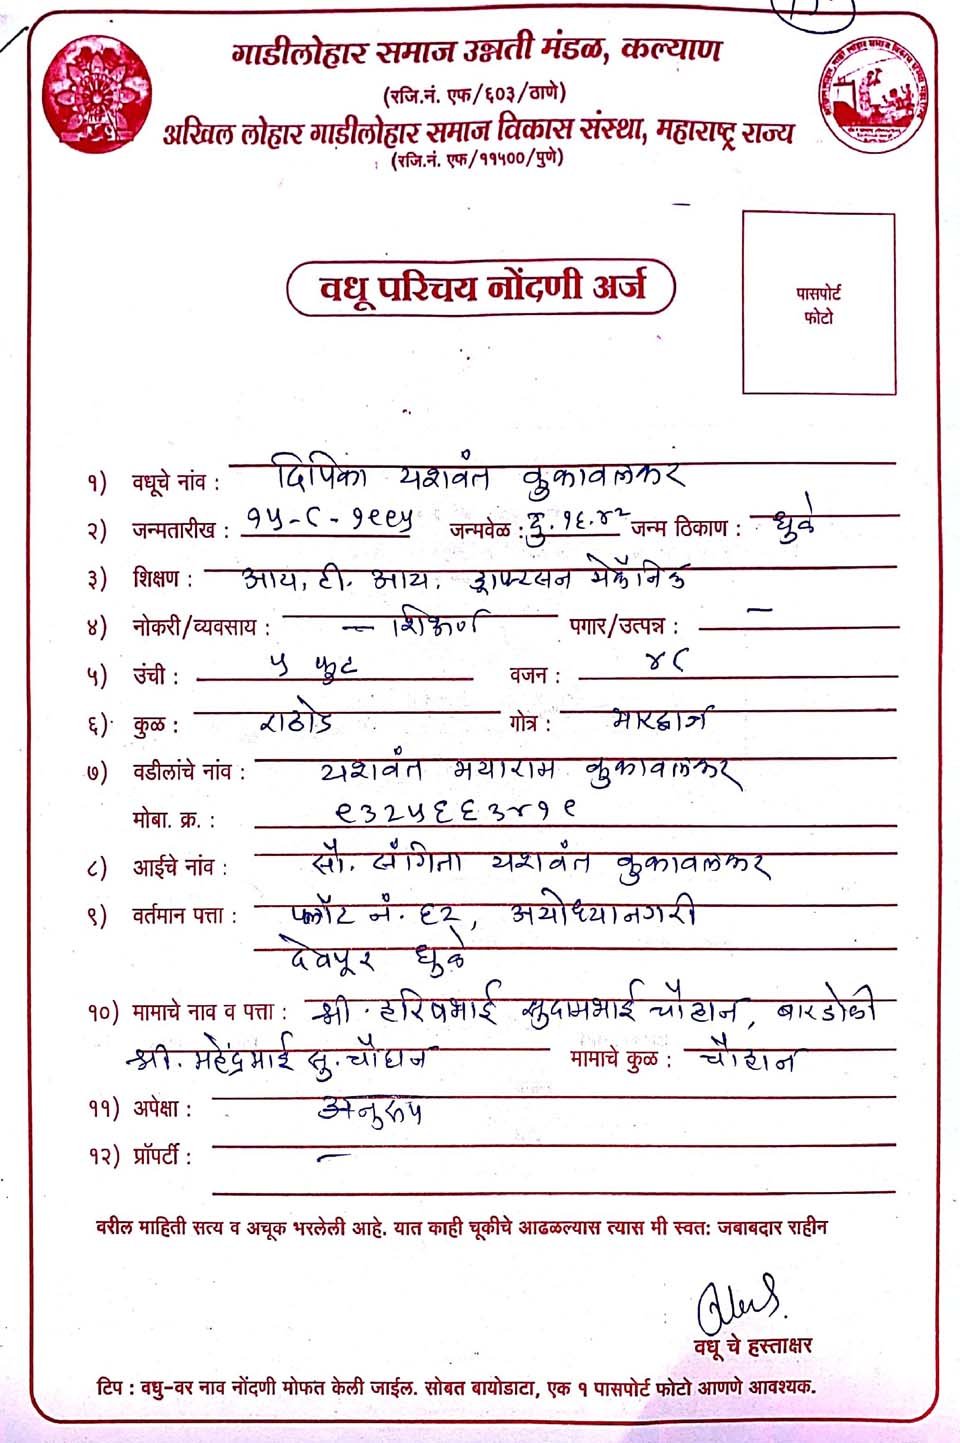 गाडीलोहार समाज उन्नती मंडळ, कल्याण
(रजि.नं. एफ/६०३/ठाणे)
अखिल लोहार गाडीलोहार समाज विकास संस्था, महाराष्ट्र राज्य
(रजि.नं. एफ/११५००/पुणे)
पासपोर्ट
फोटो
वधू परिचय नोंदणी अर्ज
१) वधूचे नांव : दिपिका यशवंत कुकावलकर
२) जन्मतारीख : १५-८-१९९५ जन्मवेळ : दु.१६.४२ जन्म ठिकाण : धुळे
३) शिक्षण : आय. टी. आय. ड्राफ्टसन मेकॅनिक
४) नोकरी/व्यवसाय : — शिकणे पगार/उत्पन्न : —
५) उंची : ५ फुट वजन : ४८
६) कुळ : राठोड गोत्र : भारद्वाज
७) वडीलांचे नांव : यशवंत भयाराम कुकावलकर
मोबा. क्र. : ९३२५६६३४१९
८) आईचे नांव : सौ. संगिता यशवंत कुकावलकर
९) वर्तमान पत्ता : प्लॉट नं. ६२, अयोध्यानगरी
देवपूर धुळे
१०) मामाचे नाव व पत्ता : श्री. हरिषभाई सुदामभाई चौहान, बारडोली
श्री. महेंद्रभाई सु. चौहान मामाचे कुळ : चौहान
११) अपेक्षा : अनुरूप
१२) प्रॉपर्टी : —
वरील माहिती सत्य व अचूक भरलेली आहे. यात काही चूकीचे आढळल्यास त्यास मी स्वत: जबाबदार राहीन
वधू चे हस्ताक्षर
टिप : वधु-वर नाव नोंदणी मोफत केली जाईल. सोबत बायोडाटा, एक १ पासपोर्ट फोटो आणणे आवश्यक.